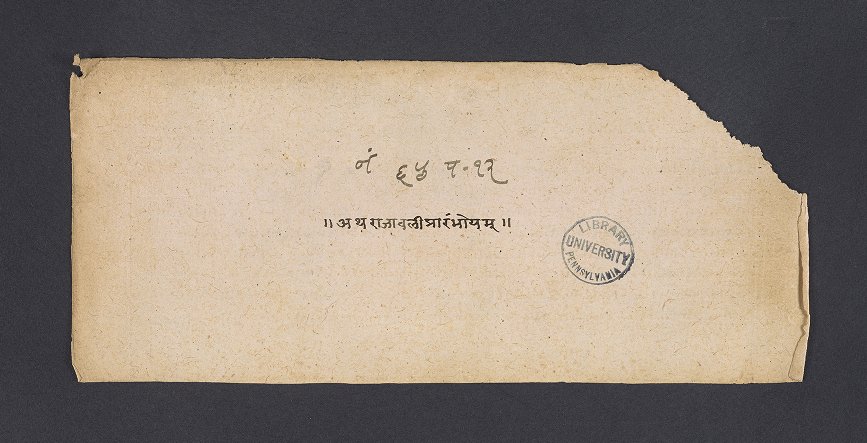 नं ६५ प॰ १२
॥ अथ राजावलीप्रारंभोयम् ॥
LIBRARY
UNIVERSITY
PENNSYLVANIA